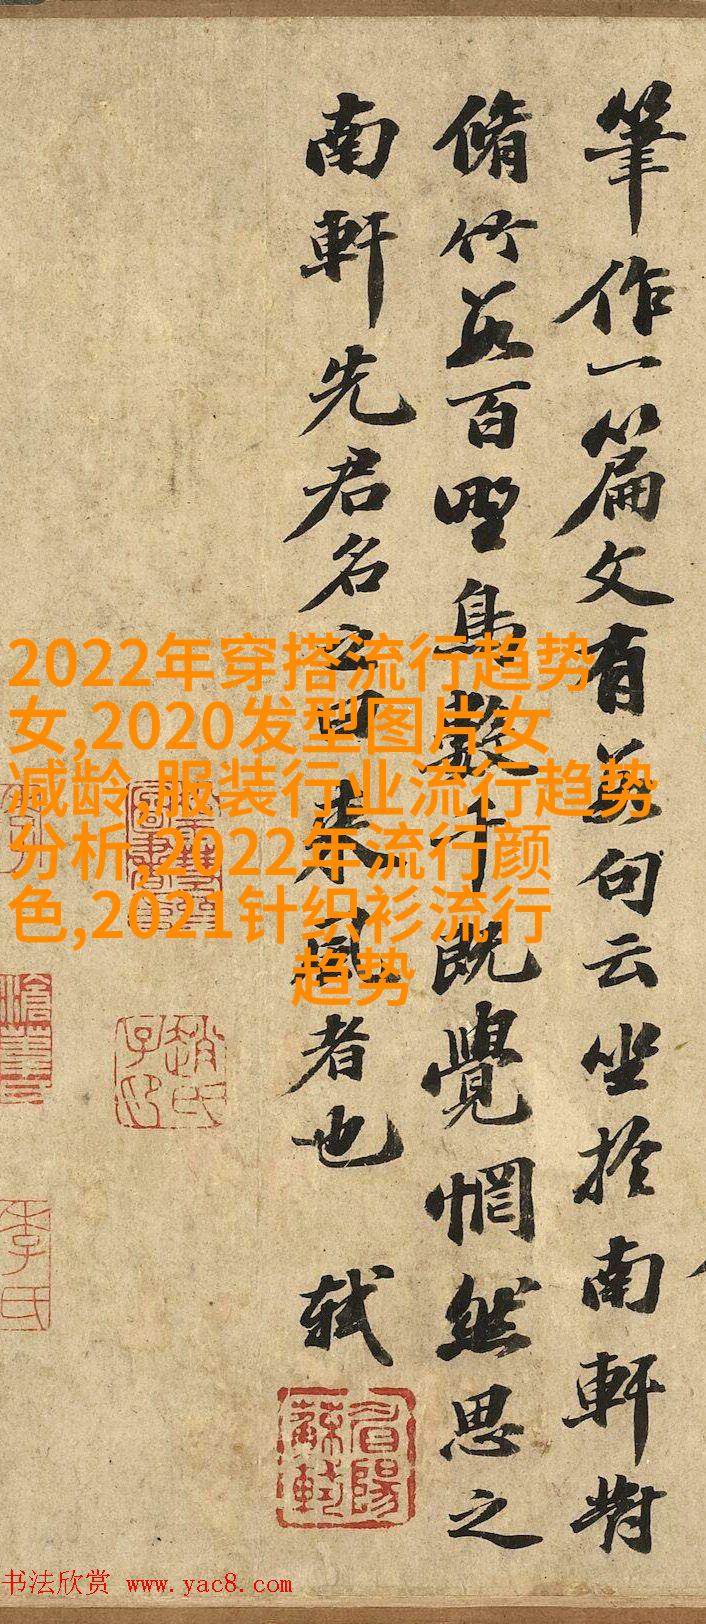 筆作一篇文有數句云坐於南軒對
脩竹數百野鳥數千既覺惘然思之
南軒先君名之曰來風者也
軾
眉陽蘇軾
趙氏子印
李氏
2022年穿搭流行趋势
女,2020发型图片女
减龄,服装行业流行趋势
分析,2022年流行颜
色,2021针织衫流行
趋势
书法欣赏 www.yac8.com